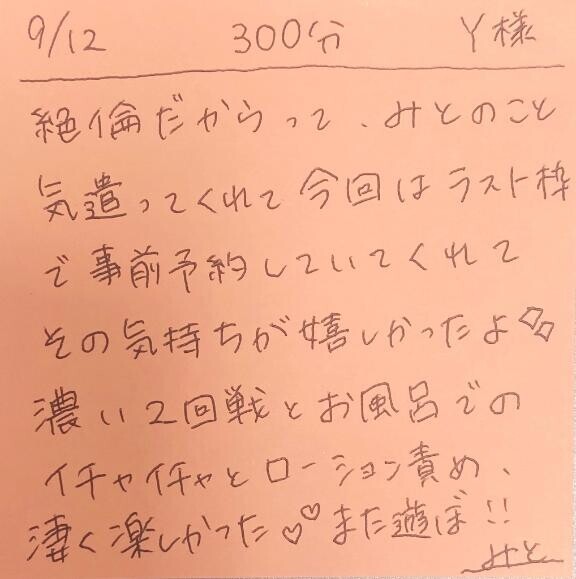 9/12 300分 Y様
絶倫だからって、みとのこと
気遣ってくれて今回はラスト枠
で事前予約していてくれて
その気持ちが嬉しかったよ
濃い2回戦とお風呂での
イチャイチャとローション責め、
凄く楽しかった♡♡また遊ぼ!!
みと